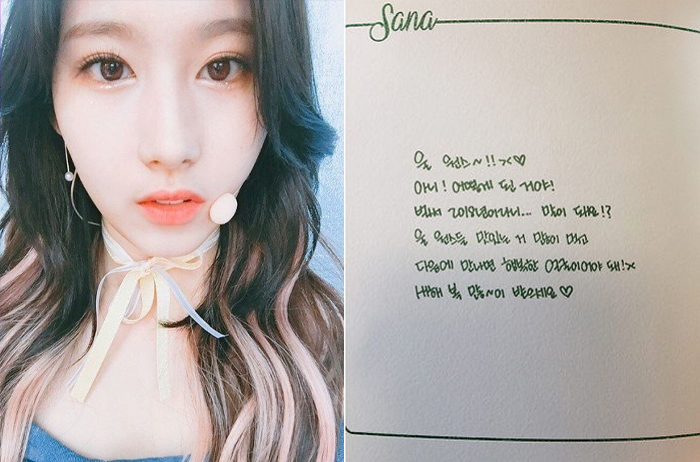 Sana
울 원스~!! >< ♡
아니! 어떻게 된 거야!
벌써 2018년이라니... 말이 돼요!?
울 원스들 맛있는 거 많이 먹고
다음에 만나면 행복한 얼굴이어야 돼!><
새해 복 많~이 받으세요 ♡